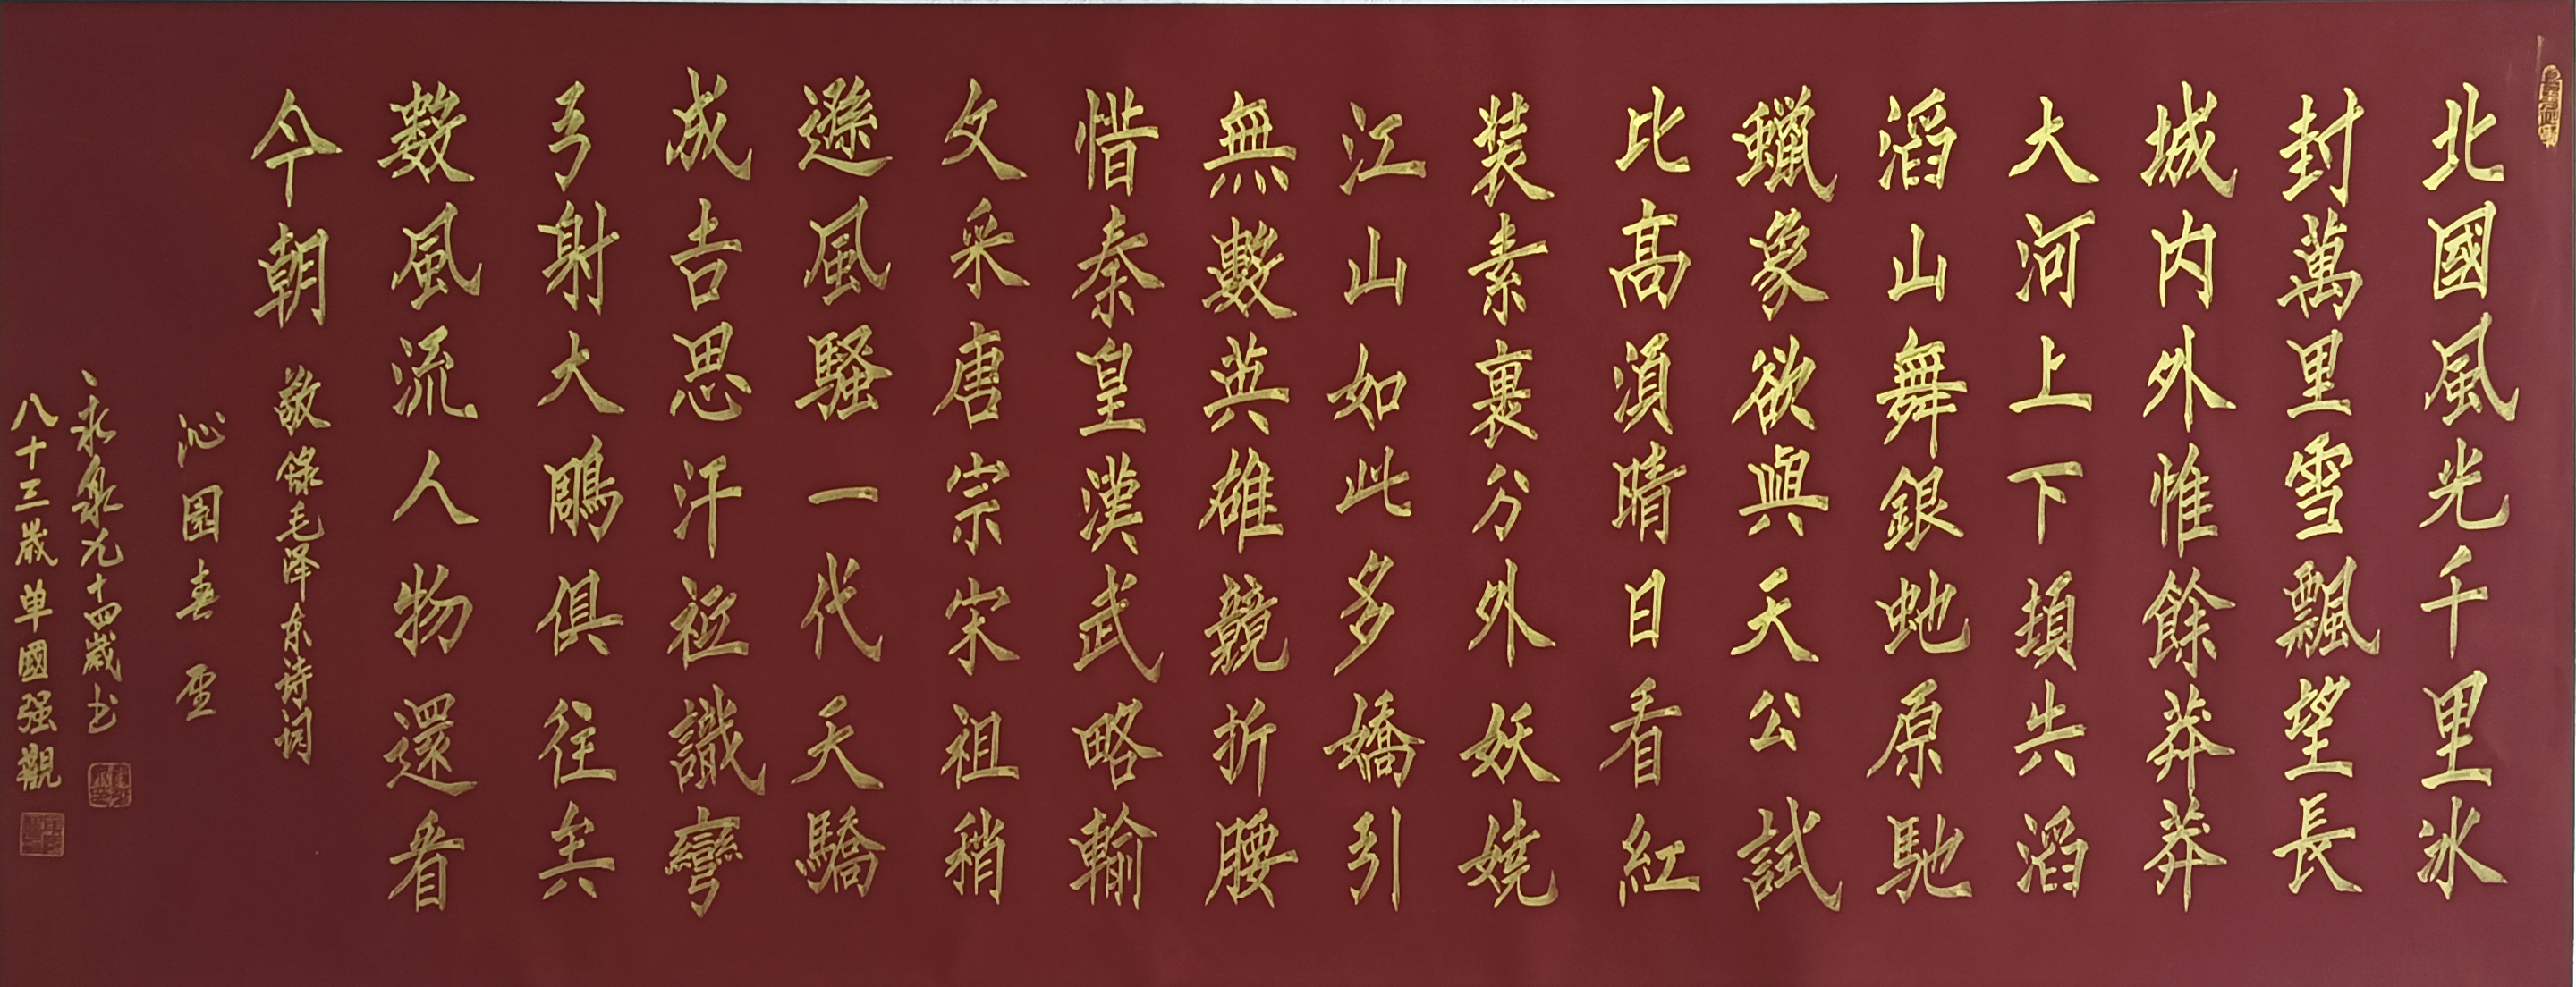 北國風光千里冰
封萬里雪飄望長
城内外惟餘莽莽
大河上下頓失滔
滔山舞銀虵原馳
蠟象欲與天公試
比高須晴日看紅
装素裹分外妖嬈
江山如此多嬌引
無數英雄競折腰
惜秦皇漢武略輸
文采唐宗宋祖稍
遜風騷一代天驕
成吉思汗祗識彎
弓射大鵰俱往矣
數風流人物還看
今朝
敬錄毛泽东诗词
沁園春雪
永泉九十四歲书
八十三歲单國强觀